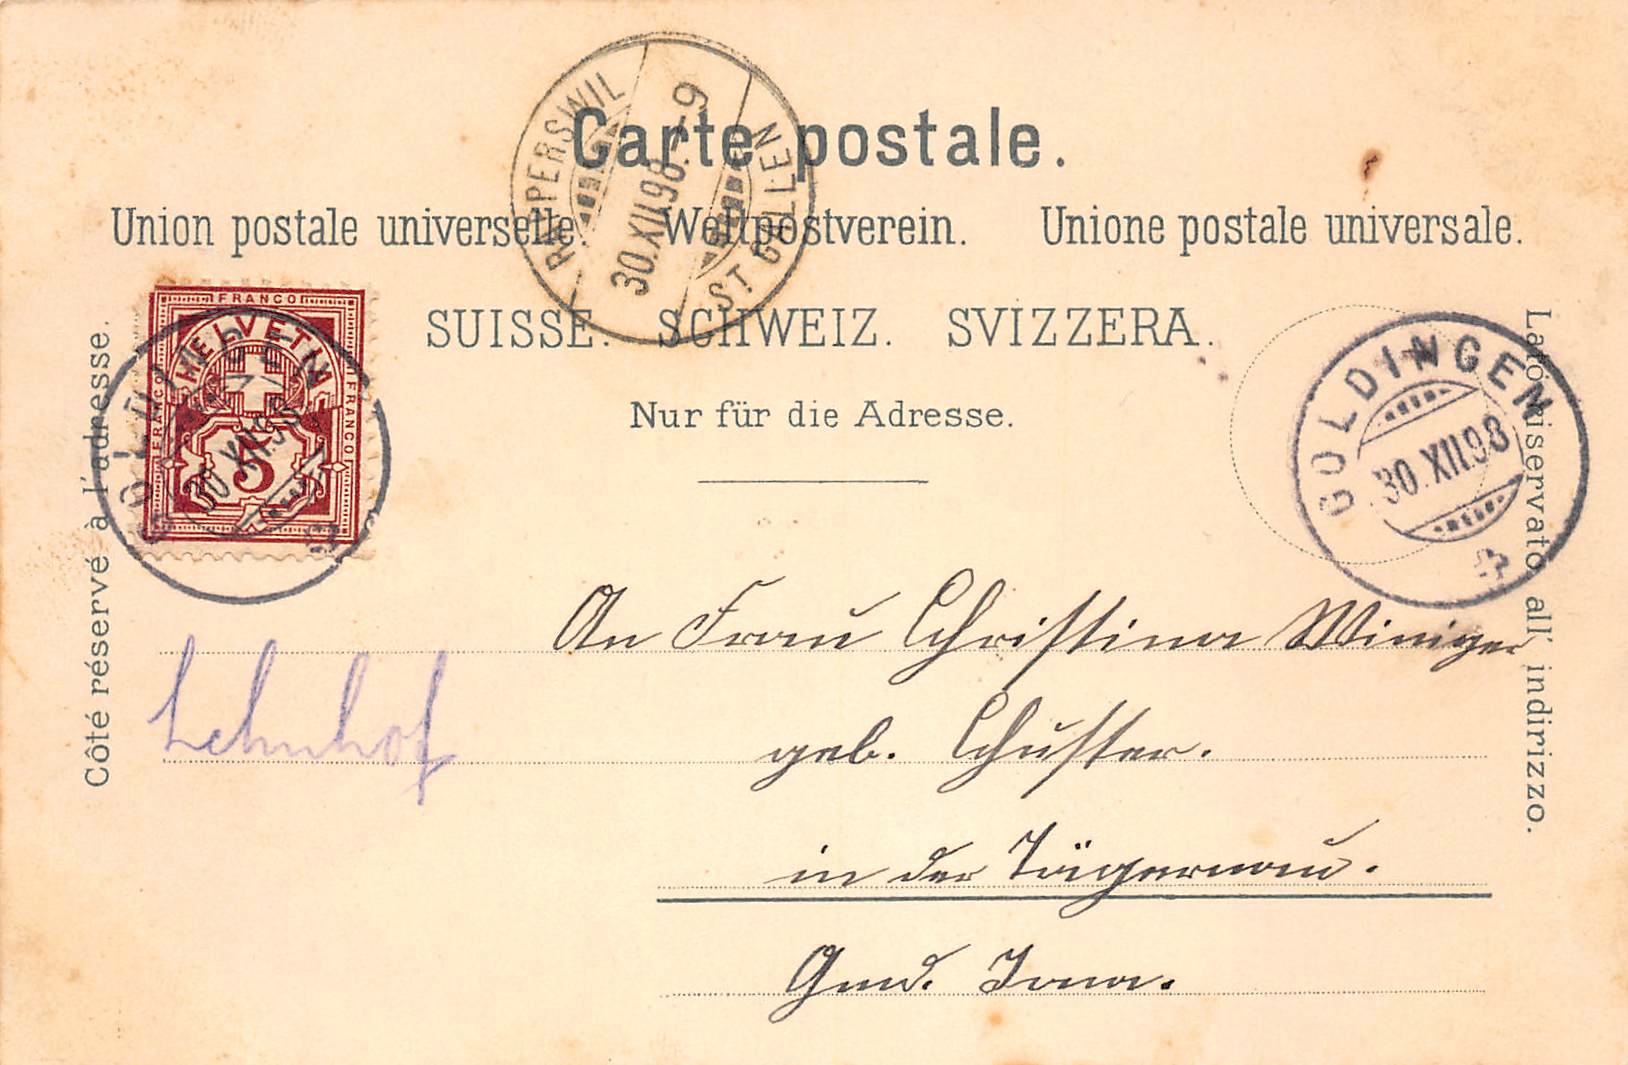 Carte postale.
Union postale universelle. Weltpostverein. Unione postale universale.
SUISSE. SCHWEIZ. SVIZZERA.
Nur für die Adresse.
Côté réservé à l'adresse.
Lato riservato all' indirizzo.
RAPPERSWIL
30.XII.98.-9
ST. GALLEN
FRANCO
FRANCO
FRANCO
HELVETIA
5
GOLDINGEN
30.XII.98
GOLDINGEN
30.XII.98
An Frau Christina Winiger
geb. Schuster.
in der Tägernau.
Gmd. Jona.
Lehnhof